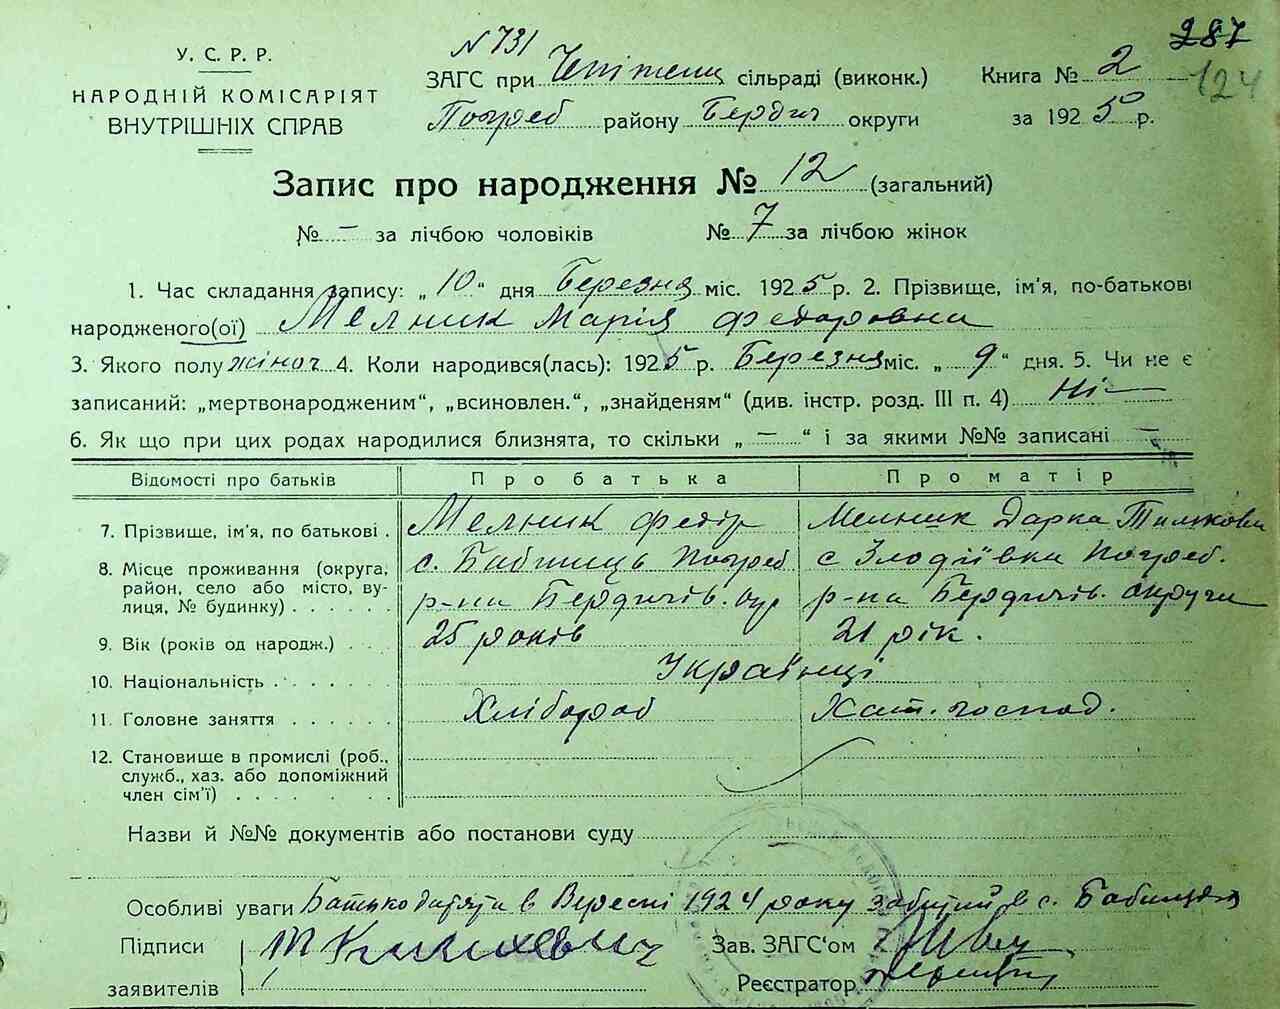 287
124
N 731
У. С. Р. Р.
НАРОДНІЙ КОМІСАРІЯТ
ВНУТРІШНІХ СПРАВ
ЗАГС при сільраді (виконк.)
Погреб району Бердич округи
Книга № 2
за 1925 р.
Запис про народження № 12 (загальний)
№ – за лічбою чоловіків № 7 за лічбою жінок
1. Час складання запису: „ 10 “ дня Березня міс. 1925 р. 2. Прізвище, ім'я, по-батькові
народженого(ої) Мелник Марія Федоровна
3. Якого полу жіноч 4. Коли народився(лась): 1925 р. Березня міс. „ 9 “ дня. 5. Чи не є
записаний: „мертвонародженим“, „всиновлен.“, „знайденям“ (див. інстр. розд. III п. 4) Ні
6. Як що при цих родах народилися близнята, то скільки „ – “ і за якими №№ записані –
Відомості про батьків Про батька Про матір
7. Прізвище, ім'я, по батькові . Мелник Федір Мелник Дарка
8. Місце проживання (округа, район, село або місто, вулиця, № будинку) с. Бабинць Погреб р-на Бердичів. окр с Злодіївки Погреб. р-на Бердичів. округи
9. Вік (років од народж.) 25 років 21 рік.
10. Національність Українці
11. Головне заняття Хлібороб Хат. господ.
12. Становище в промислі (роб., служб., хаз. або допоміжний член сім'ї)
Назви й №№ документів або постанови суду
Особливі уваги Батько дитяти в Вересні 1924 року забитий в с. Бабинцях
Підписи
заявителів
Зав. ЗАГС'ом
Реєстратор